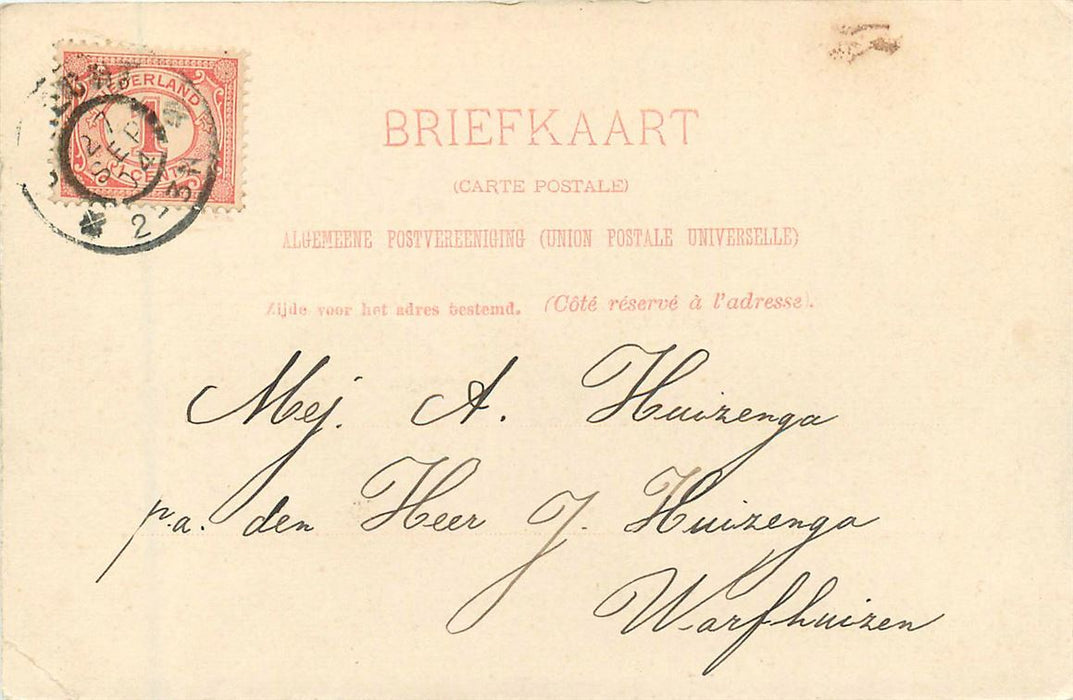 NEDERLAND
1
CENT
27
SEP
04
2-3N
BRIEFKAART
(CARTE POSTALE)
ALGEMEENE POSTVEREENIGING (UNION POSTALE UNIVERSELLE)
Zijde voor het adres bestemd. (Côté réservé à l'adresse).
Mej. A. Huizenga
p.a. den Heer J. Huizenga
Warfhuizen